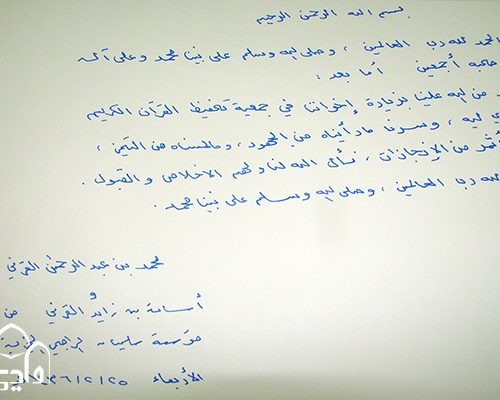 بسم الله الرحمن الرحيم
الحمد لله رب العالمين ، وصلى الله وسلم على نبينا محمد وعلى آله
وصحبه أجمعين أما بعد :
من الله علينا بزيارة إخواننا في جمعية تحفيظ القرآن الكريم
، وسرنا ما رأيناه من الجهود ، وما لمسناه من التميز ،
من الإنجازات ، نسأل الله لنا ولهم الاخلاص والقبول .
لله رب العالمين ، وصلى الله وسلم على نبينا محمد .
محمد بن عبد الرحمن القرني
و
أسامة بن زايد القرني من
مؤسسة سليمان الراجحي الخيرية
الأربعاء ١٤٣٦/٢/٢٥